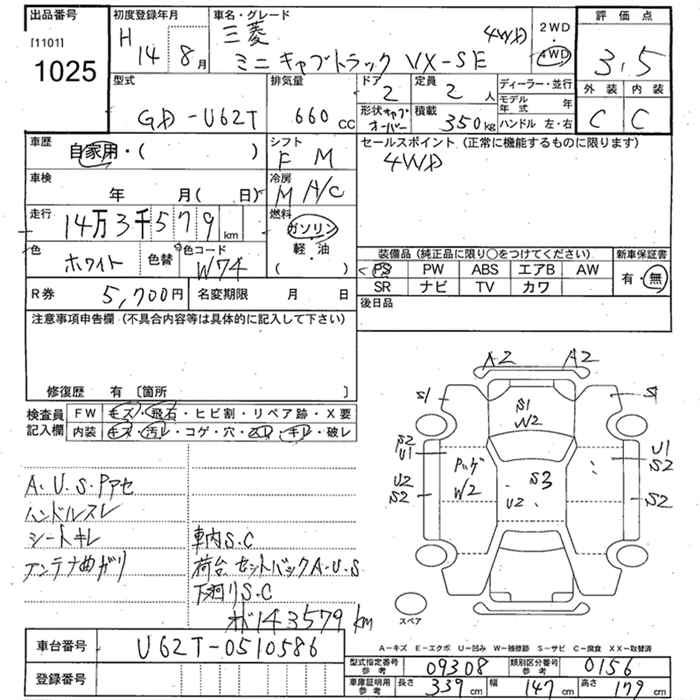 出品番号 初度登録年月 車名・グレード 2WD 評価点
[1101] H 14年 8月 三菱 4WD 4WD
1025 ミニキャブトラック VX-SE 3.5
型式 排気量 ドア 定員 ディーラー・並行 外装 内装
GD-U62T 660cc 2 2人 モデル年式 年 C C
形状 キャブオーバー 積載 350kg ハンドル 左・右
車歴 シフト セールスポイント (正常に機能するものに限ります)
自家用・( ) F M 4WD
車検 冷房
年 月( 日) M A/C
走行 燃料
14万3千579km ガソリン
色 色替 色コード 軽・油
ホワイト W74 ( )
装備品 (純正品に限り○をつけてください) 新車保証書
PS PW ABS エアB AW 有・無
SR ナビ TV カワ
R券 5,700円 名変期限 月 日 後日品
注意事項申告欄 (不具合内容等は具体的に記入して下さい)
修復歴 有 [箇所 ]
検査員記入欄 FW キズ・飛石・ヒビ割・リペア跡・X要
内装 キズ・汚レ・コゲ・穴・スレ・キレ・破レ
A2 A2
S1 S1
S1
W2
S2 U1
U1 S2
U2 W2 U2 S3 S2
S2
A・U・S・Pアセ
ハンドルスレ
シートキレ 車内S.C
アンテナ曲ガリ 荷台セットバックA・U・S
下廻リS.C
メ143579km
スペア
車台番号 U62T-0510586
登録番号
A-キズ E-エクボ U-凹み W-補修跡 S-サビ C-腐食 XX-取替済
型式指定番号 参考 09308 類別区分番号 参考 0156
車庫証明用 参考 長さ 339cm 幅 147cm 高さ 179cm